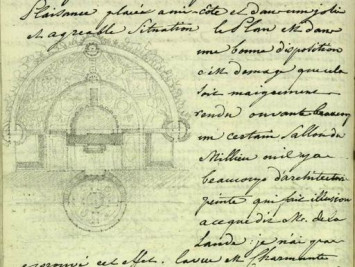 Plaisance placée a mi-côte et dans une jolie
et agreable Situation le Plan est dans
une bonne disposition
c'est domage que cela
soit maigrement
rendu
un certain Sallon du
Millieu ou il y a
beaucoup d'architecture
peinte qui fait illusion
a ce que dit M. de la
lande : je n'ai pas
eprouvé cet effet. la vue est Charmante